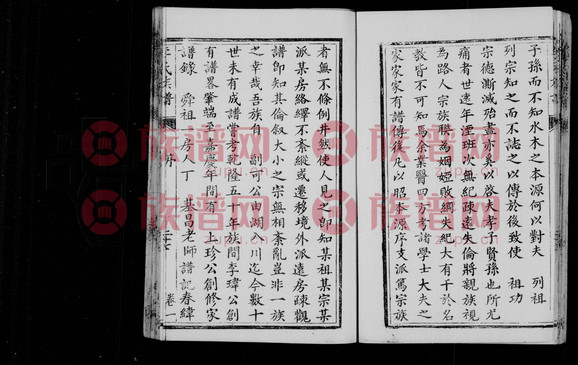 子孫而不知水木之本源何以對夫 列祖
列宗知之而不誌之以傳於後致使 祖功
宗德澌減殆盡亦奚以啟大孝子賢孫也所尤
痛者世遠年湮班次無紀疎遠失倫將親族視
為路人宗族聯為姻婭敗綱失紀大有干於名
教皆不可知焉余業醫四方考譜學士大夫之
家家家有譜傳後凡以昭本源序支派篤宗族
者無不條例井然使人見之即知某祖某宗某
派某房絡繹不紊縱或遷移境外派遠房疎觀
譜即知其倫叙大小之宗無相紊亂豈非一族
之幸哉吾族自 副可公由湖入川迄今數十
世未有成譜嘗考乾隆五十年族間李瑋公創
有譜畧肇端于嘉慶年間 上珍公創修家
譜錄 舜祖一房人丁 基昌老師譜記春緯
氏宗譜
序
卷一
族谱网